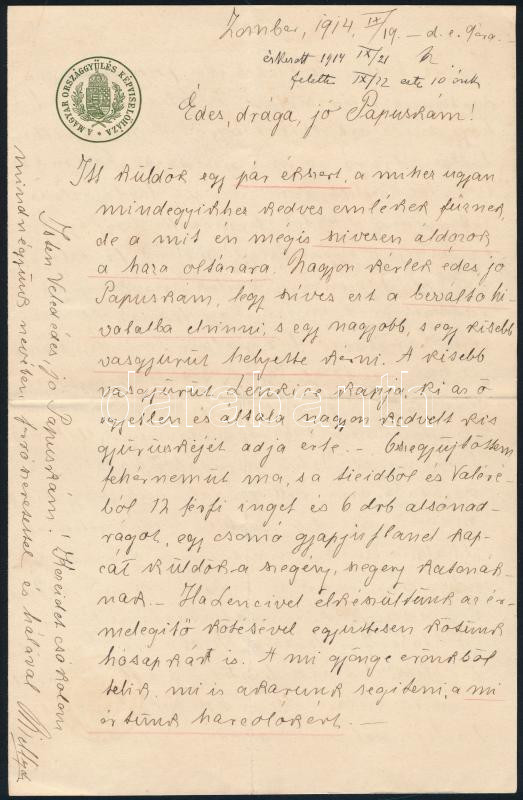 Zombor, 1914. IX/19. – d. e. 9 óra. –
érkezett 1914 IX/21
feletve IX/22 este 10 órak
A MAGYAR ORSZÁGGYÜLÉS KÉPVISELŐHÁZA
Édes, drága, jó Papuskám!
Itt küldök egy pár ékszert, a mihez ugyan
mindegyikhez kedves emlékek fűznek,
de a mit én mégis szivesen áldozok
a haza oltárára. Nagyon kérlek édes jó
Papuskám, légy szíves ezt a beváltó hi-
valatba elvinni, s egy nagyobb, s egy kisebb
vasgyűrűt helyette kérni. A kisebb
vasgyűrűt Lenkice kapja, ki az ő
egyetlen és általa nagyon kedvelt kis
gyűrűskéjét adja érte. – Összegyűjtöttem
fehérneműt ma, s a tieidből és Valéré-
ből 12 férfi inget és 6 drb alsónad-
rágot, egy csomó gyapjú flanel kap-
cát küldök a szegény, szegény katonák-
nak. – Ha Lencivel elkészültünk az ér-
melegítő kötésével együttesen kötünk
hósapkát is. A mi gyönge erőnkből
telik, mi is akarunk segíteni, a mi
értünk harcolókért. –
Isten Veled édes, jó Papuskám! Kezeidet csókolom
mindnégyünk nevében forró szeretettel és hálával